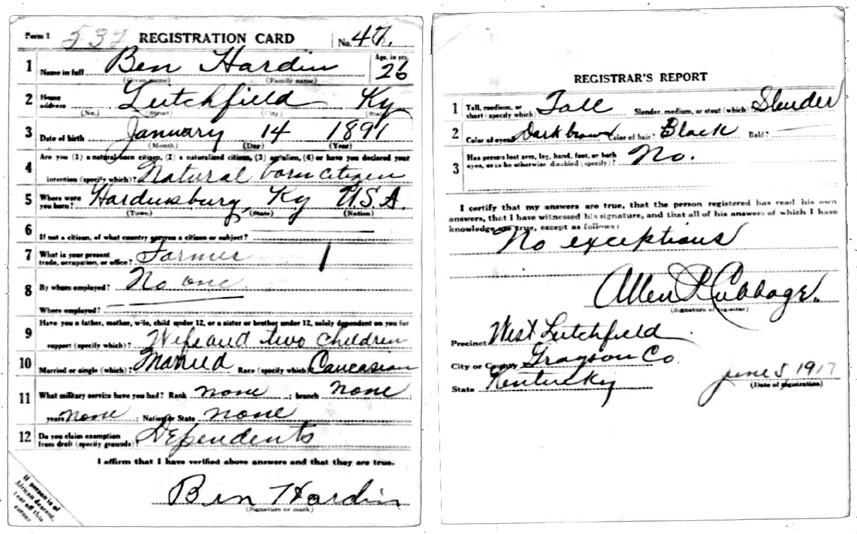 Form 1 532 REGISTRATION CARD No. 47.
1 Name in full Ben Hardin Age, in yrs. 26
(Given name) (Family name)
2 Home address Leitchfield Ky
(No.) (Street) (City) (State)
3 Date of birth January 14 1891
(Month) (Day) (Year)
4 Are you (1) a natural-born citizen, (2) a naturalized citizen, (3) an alien, (4) or have you declared your
intention (specify which)? Natural born citizen
5 Where were you born? Hardinsburg, Ky U.S.A.
(Town) (State) (Nation)
6 If not a citizen, of what country are you a citizen or subject?
7 What is your present trade, occupation, or office? Farmer
8 By whom employed? No one
Where employed?
9 Have you a father, mother, wife, child under 12, or a sister or brother under 12, solely dependent on you for
support (specify which)? Wife and two children
10 Married or single (which)? Married Race (specify which)? Caucasian
11 What military service have you had? Rank none ; branch none
years none ; Nation or State none
12 Do you claim exemption from draft (specify grounds)? Dependents
I affirm that I have verified above answers and that they are true.
Ben Hardin
(Signature or mark)
If person is of
African descent,
tear off this
corner.
REGISTRAR'S REPORT
1 Tall, medium, or short (specify which)? Tall Slender, medium, or stout (which)? Slender
2 Color of eyes? Dark brown Color of hair? Black Bald?
3 Has person lost arm, leg, hand, foot, or both eyes, or is he otherwise disabled (specify)? No.
I certify that my answers are true, that the person registered has read his own
answers, that I have witnessed his signature, and that all of his answers of which I have
knowledge are true, except as follows:
No exceptions
Allen R Cubbage.
(Signature of registrar)
Precinct West Leitchfield
City or County Grayson Co.
State Kentucky June 5, 1917
(Date of registration)